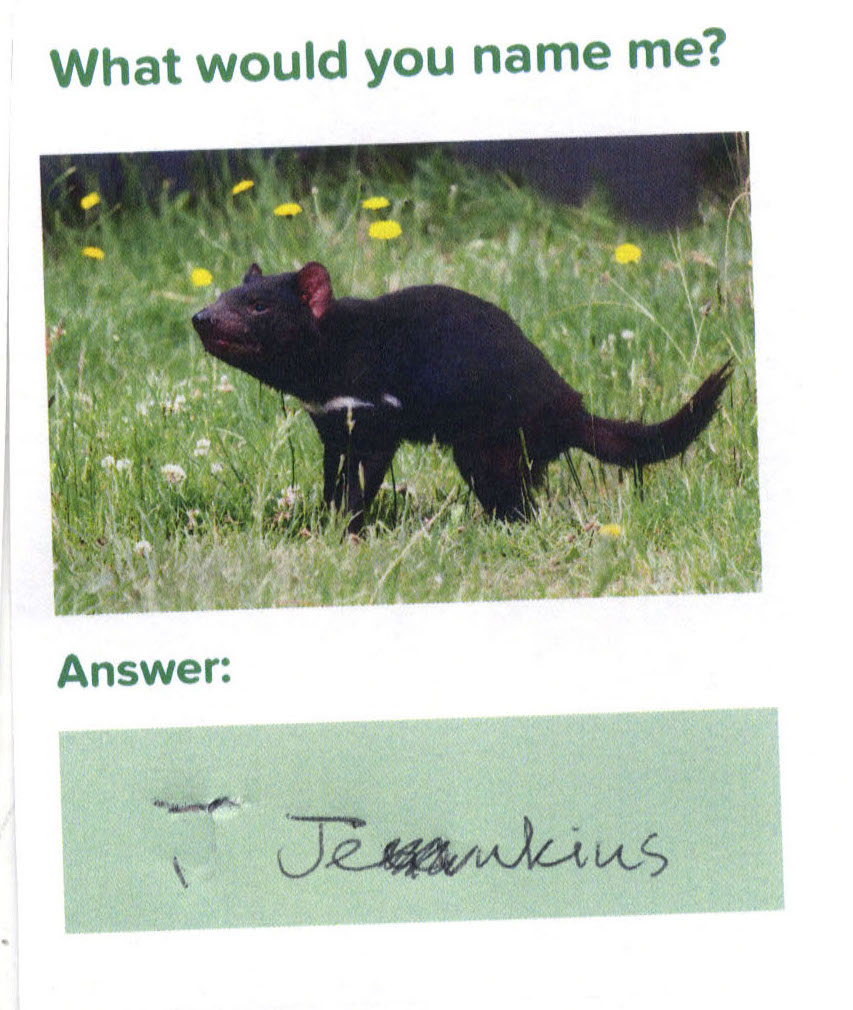 What would you name me?
Answer:
Jenkins